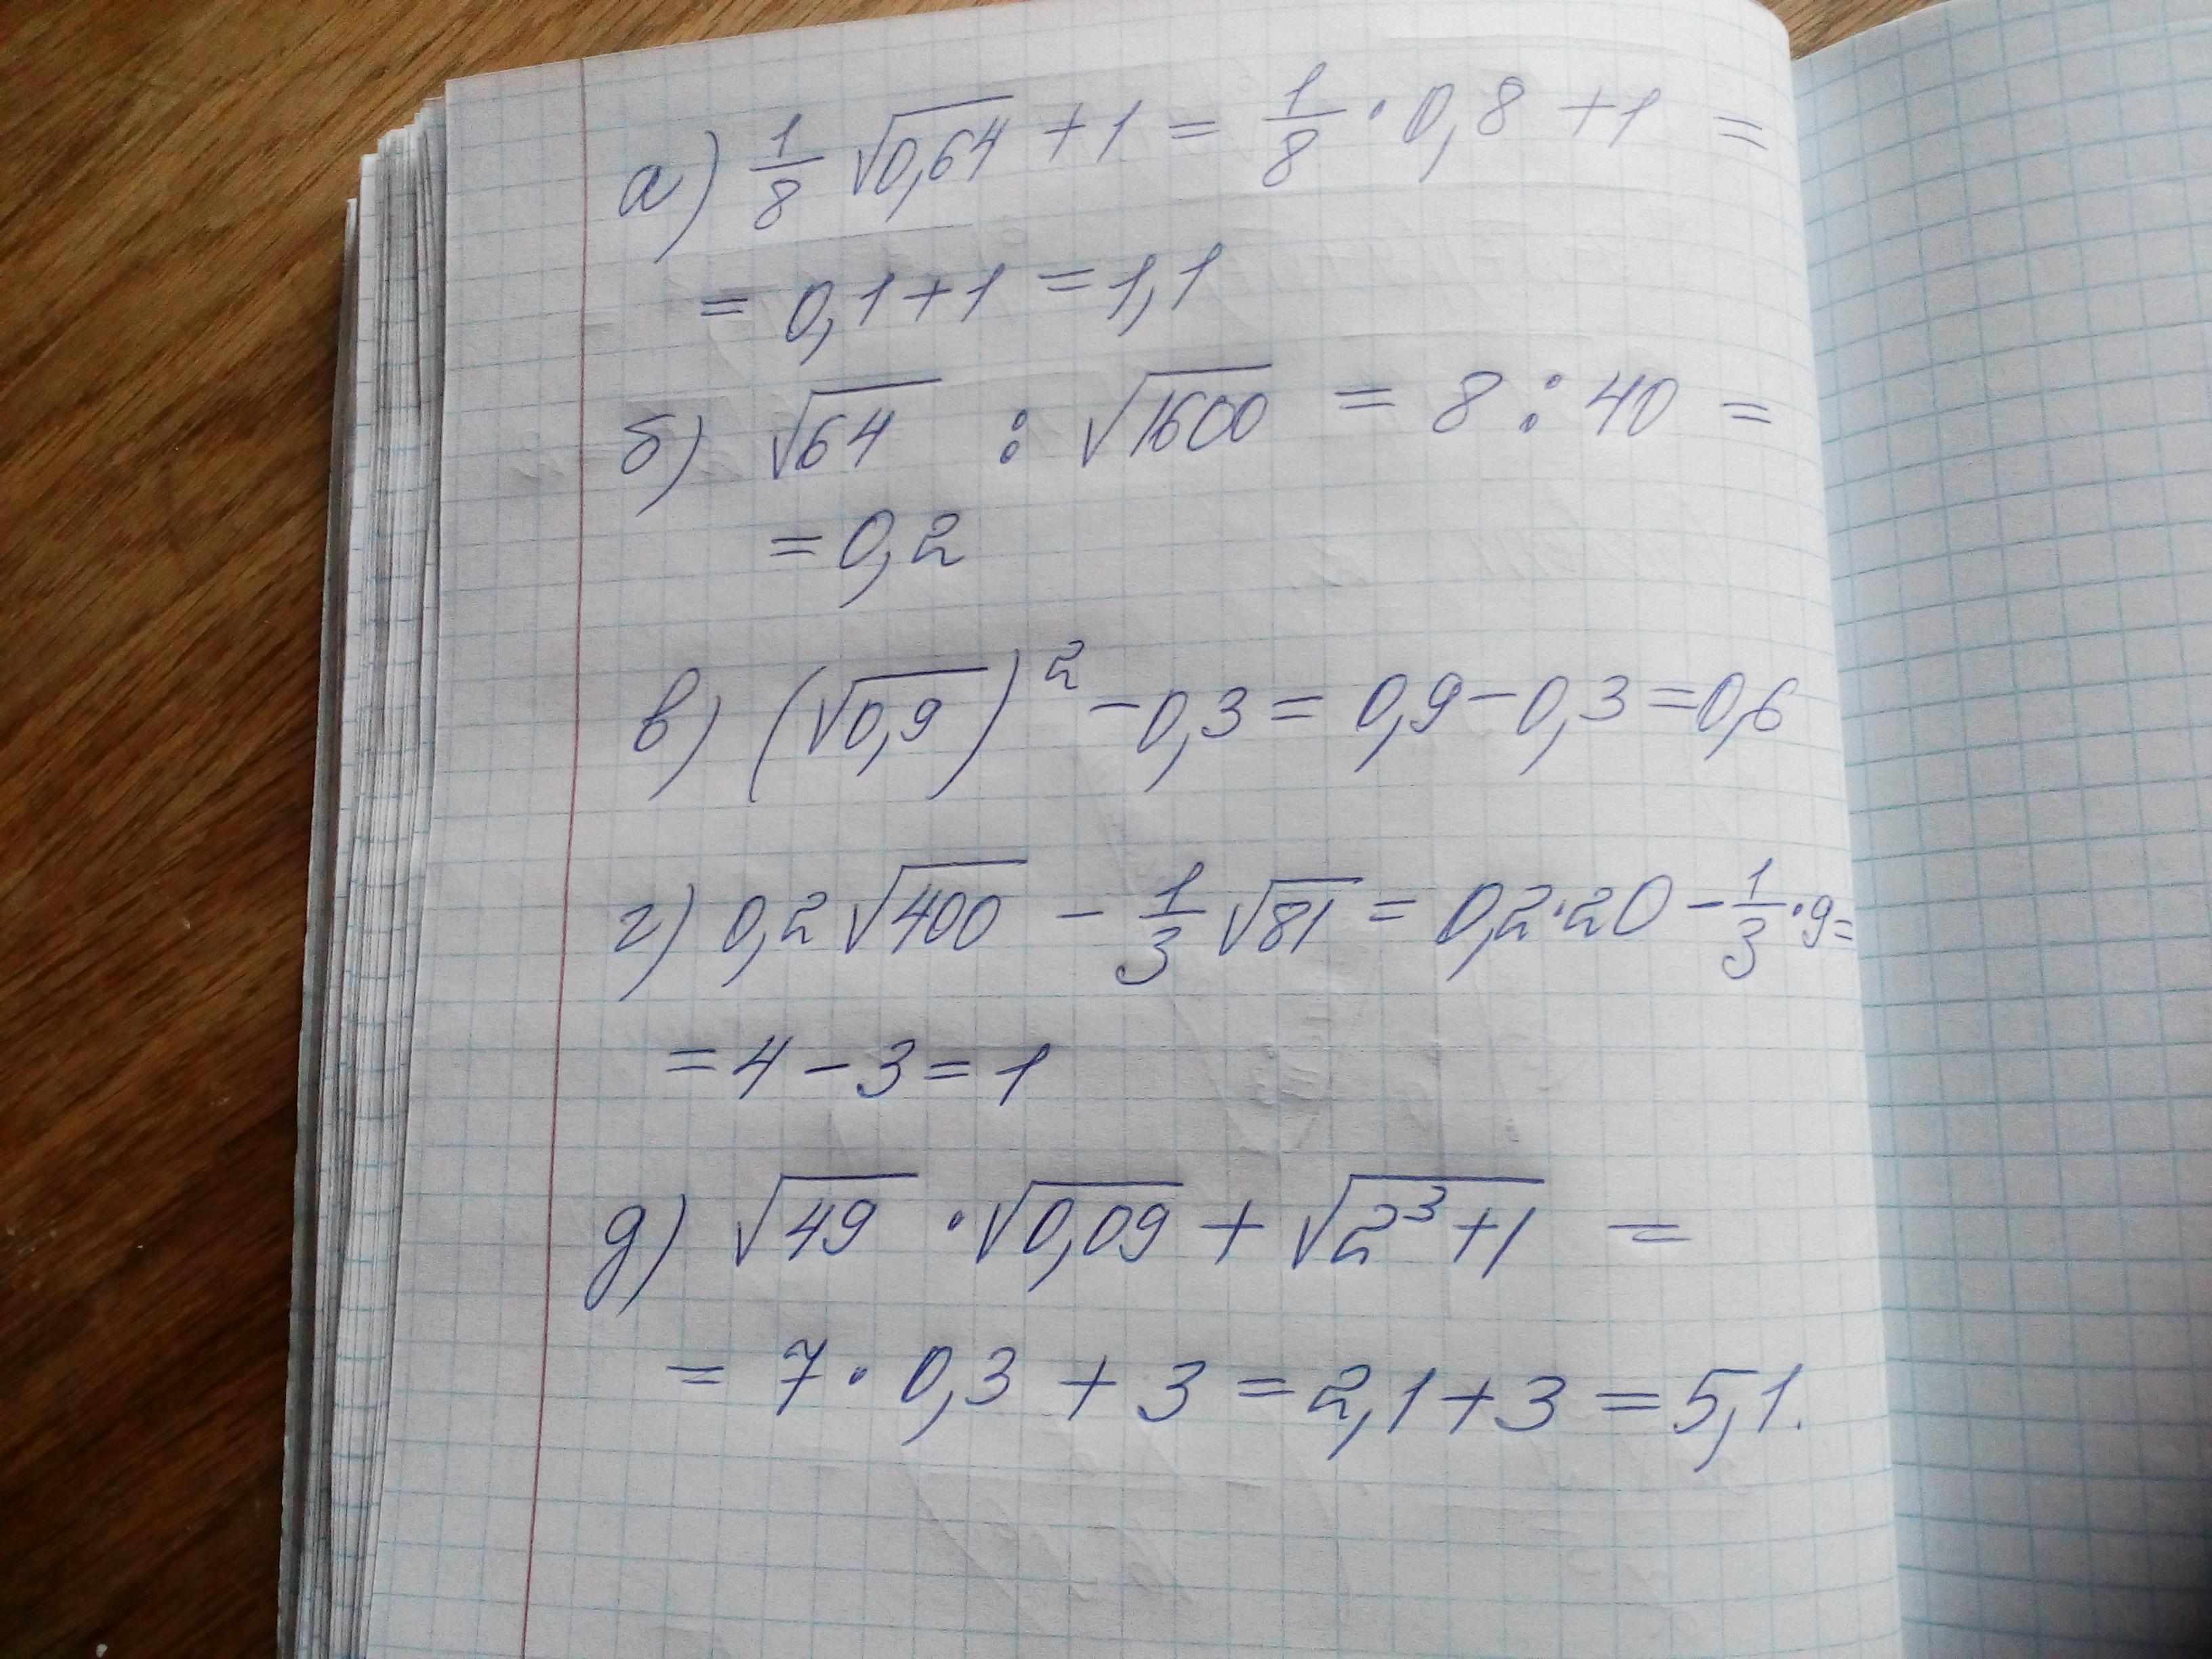 а) 1/8 √0,64 + 1 = 1/8 · 0,8 + 1 =
= 0,1 + 1 = 1,1
б) √64 : √1600 = 8 : 40 =
= 0,2
в) (√0,9)² - 0,3 = 0,9 - 0,3 = 0,6
г) 0,2√400 - 1/3 √81 = 0,2·20 - 1/3·9 =
= 4 - 3 = 1
д) √49 · √0,09 + √(2³+1) =
= 7 · 0,3 + 3 = 2,1 + 3 = 5,1.